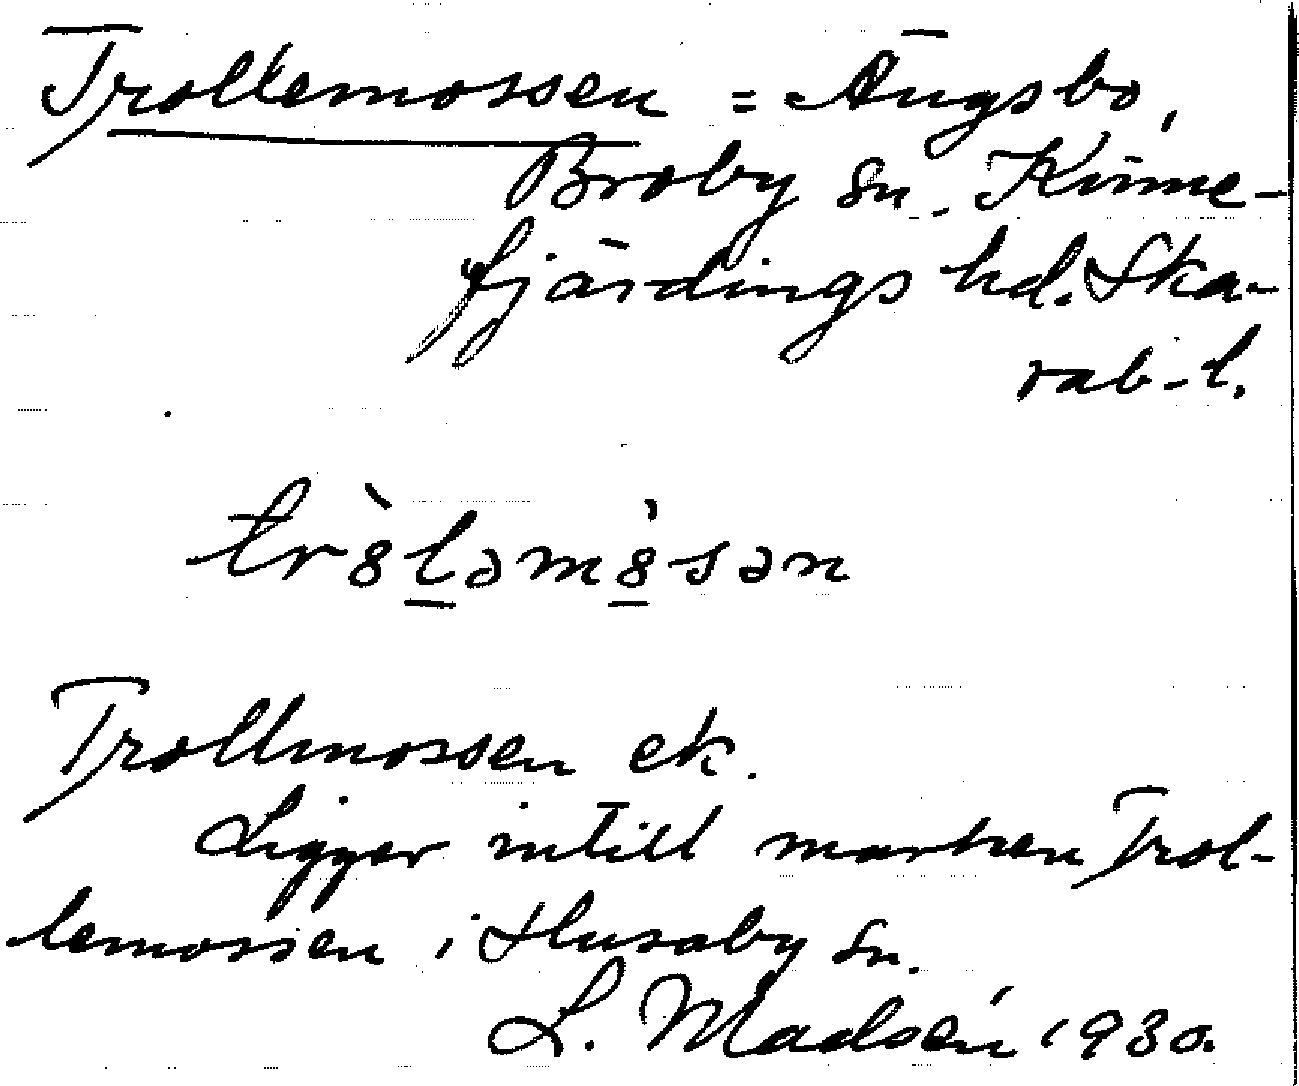 Trollemossen = Ängsbo,
Broby sn. Kinne-
fjärdings hd. Ska-
rab-l.
trò̀8lәm8̀sәn
Trollmossen ek.
Ligger intill marken Trol-
lemossen i Husaby sn.
L. Madsén 1930.